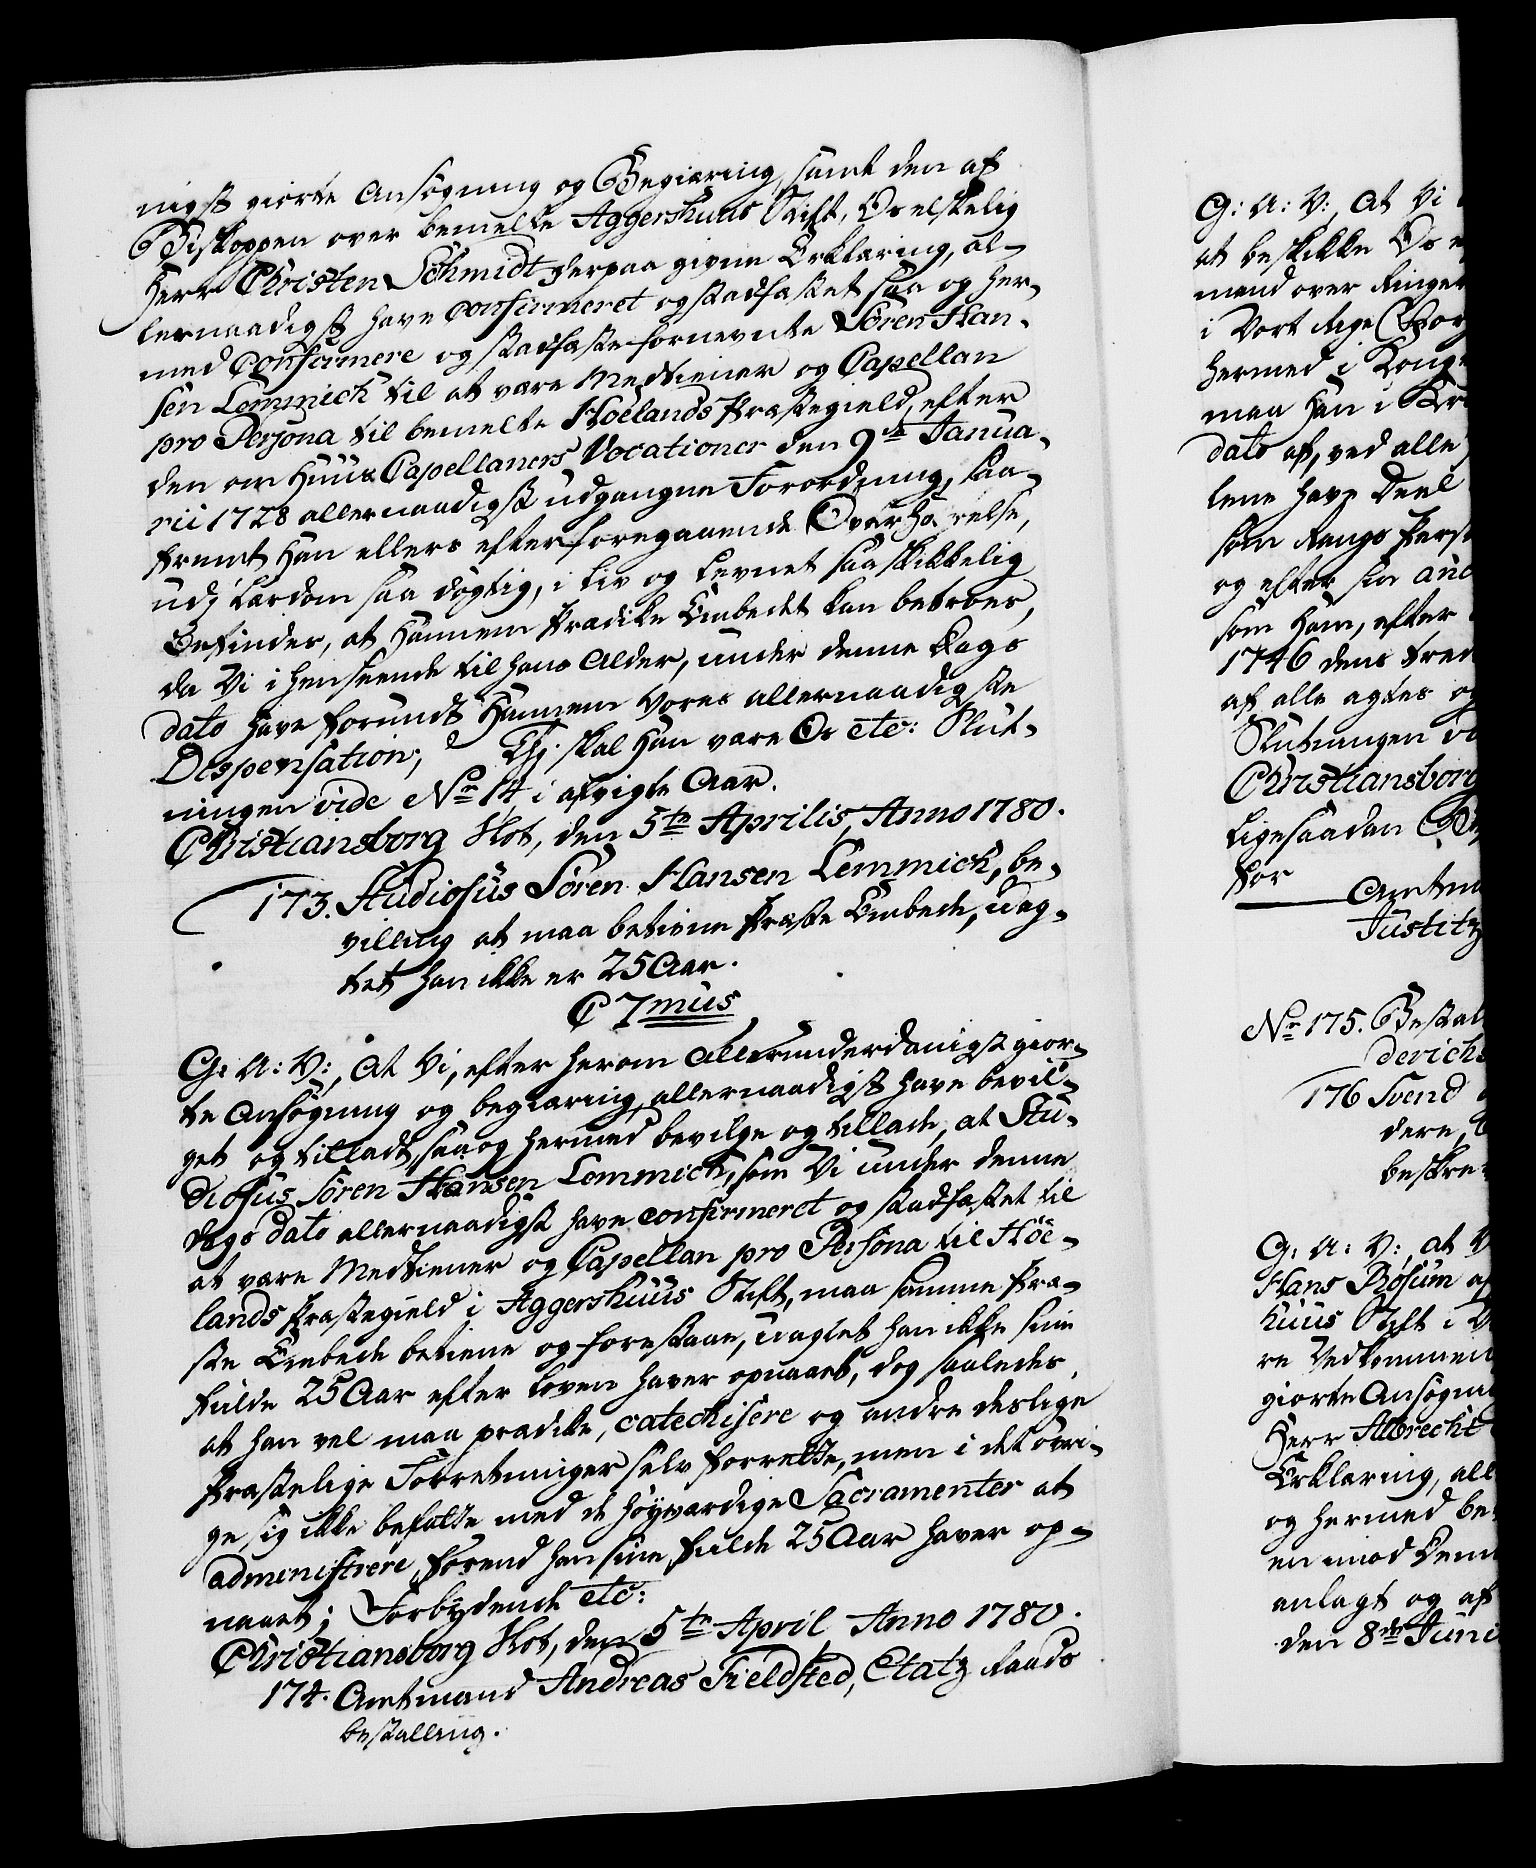 nigst giorte Ansøgning og Begiæring, samt den af
Biskoppen over bemelte Aggershuus Stift, Os elskelig
Herr Christen Schmidt herpaa givne Erklæring, al-
lernaadigst have confirmeret og stadfæstet, saa og her-
med confirmere og stadfæste fornevnte Sören Han-
sen Lemmich til at være Medtiener og Capellan
pro Persona til bemelte Hoelands Præstegield, efter
den om Huus Capellaners Vocationer den 9de Janua-
rii 1728 allernaadigst udgangne Forordning, saa-
fremt Han ellers efter foregaaende Overhørelse,
udj Lærdom saa dögtig, i Liv og Levnet saa skikkelig
Befindes, at Hannem Prædike Embedet kan betroes,
da Vi i Henseende til hans Alder, under denne Dags
dato have forundt Hannem Vores allernaadigste
Dispensation; Thj skal Han være Os etc: Slut-
ningen vide No 14 i afvigte Aar.
Christiansborg Slot, den 5te Aprilis, Anno 1780.
173. Studiosus Sören Hansen Lemmich, be-
villing at maa betiene Præste Embede, uag-
tet han ikke er 25 Aar.
C 7mus
G: A: V:, At Vi, efter herom Allerunderdanigst gior-
te Ansøgning og begiæring, allernaadigst have bevil-
get og tilladt, saa og hermed bevilge og tillade, at Stu-
diosus Sören Hansen Lemmich, som Vi under denne
Dags dato allernaadigst have confirmeret og stadfæstet til
at være Medtiener og Capellan pro Persona til Höe-
lands Præstegield i Aggershuus Stift, maa samme Præ-
ste Embede betiene og forestaae, uagtet han ikke sine
fulde 25 Aar efter Loven haver opnaaet, dog saaledes,
at han vel maa prædike, catechisere og andre deslige
Præstelige Forretninger selv forrette, men i det øvri-
ge, sig ikke befatte med de höyværdige Sacramenter at
administrere, förend han sine fulde 25 Aar haver op-
naaet; Forbydende etc:
Christiansborg Slot, den 5te April Anno 1780.
174. Amtmand Andreas Fieldsted, Etatz Raads
bestalling.
G: A: V:, At Vi
at beskikke Os e
mand over Ringer
i Vort Rige Nor
hermed i Konge
maa Han i Kra
dato af, ved alle
lene have Deel
som Rangs Pers
og efter sin anc
som Ham, efter
1746 dens tred
af alle agtes og
Slutningen vi
Christiansborg
Ligesaadan Be
for
Amtma
Justitz
No 175. Bestal
derichs
176 Svend
dere,
beskre
G: A: V:, at V
Hans Bösum af
huus Stift i V
re Vedkommen
giorte Ansøgn
Herr Albrecht
Erklæring, all
og hermed be
en mod Dem
anlagt og af
den 8de Juni